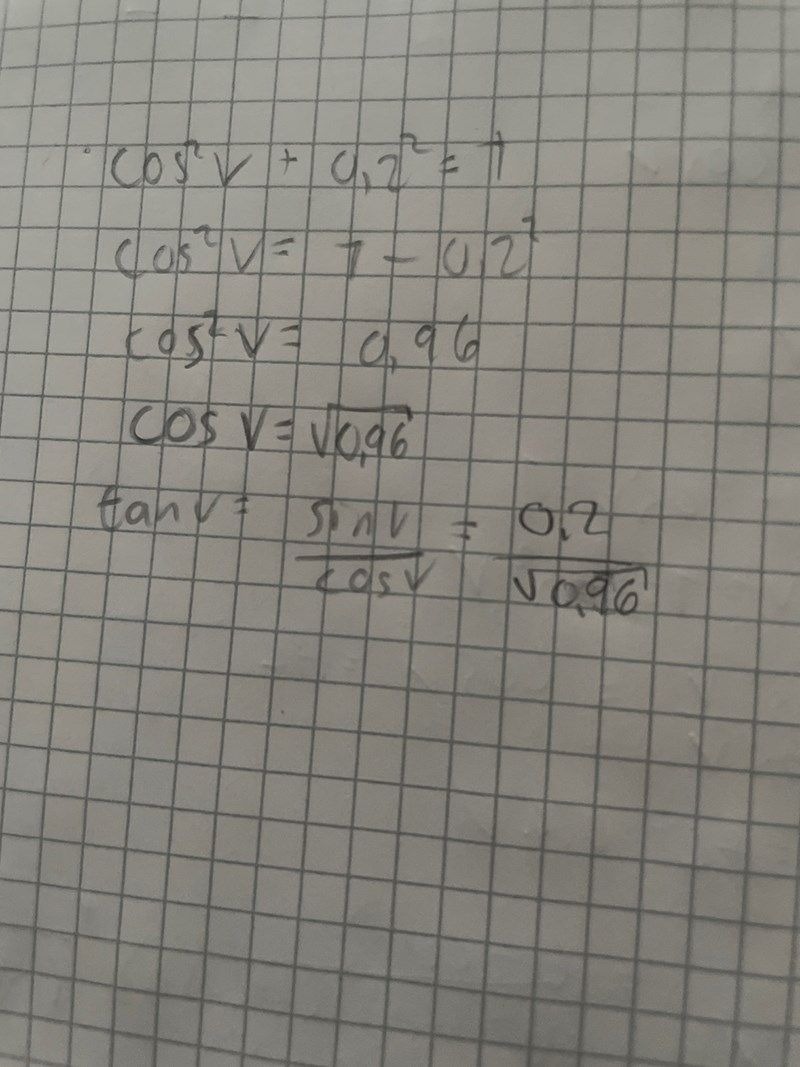 cos² v + 0,2² = 1
cos² v = 1 - 0,2²
cos² v = 0,96
cos v = √0,96
tan v = sin v / cos v = 0,2 / √0,96